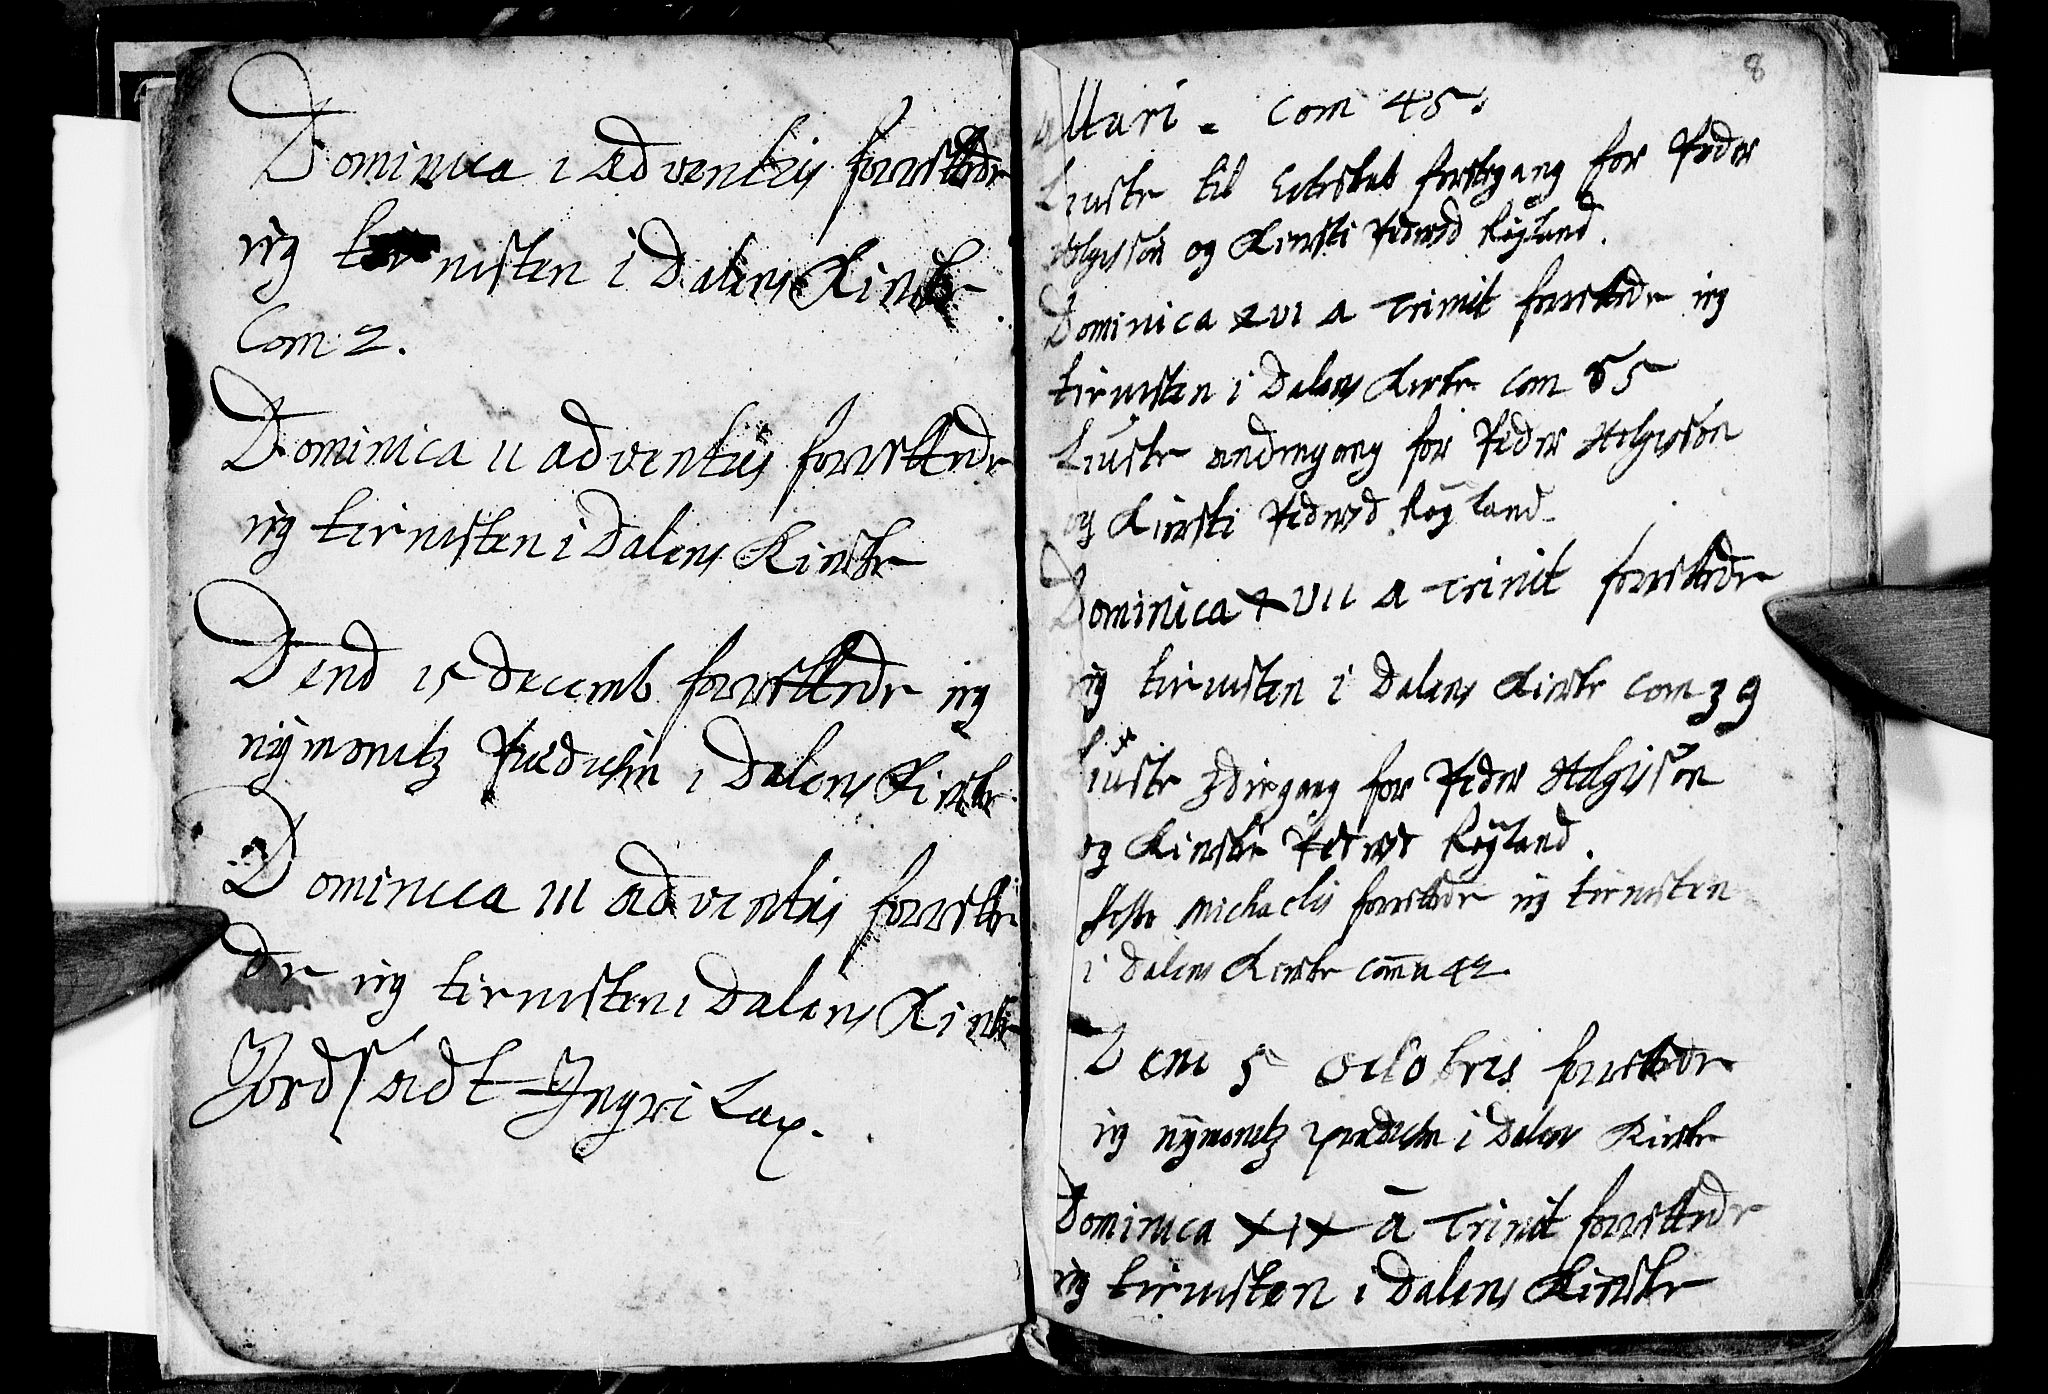 Dominica i adventus forrettede
ieg tienisten i Dalens Kircke
Com 2.
Dominica ii adventus forrettede
ieg tienisten i Dalens Kircke
Dend 15 decemb forrettede ieg
nÿmonetz Prædichen i Dalens Kircke
Dominica iii adventus forrette
de ieg tienisten i Dalens Kircke
Jordfædt Ingri Lax.
8
altari. Com 45.
Liuste til Ecteskab förstegang for Peder
Helgesson og Kiersti Pedersd Röyland.
Dominica XVI a Trinit forrettede ieg
tienisten i Dalens Kircke Com 55
Liuste andengang for Peder Helgesson
og Kiersti Pedersd Röyland.
Dominica XVII a Trinit forrettede
ieg tienisten i Dalens Kircke Com 39
Liuste 3diegang for Peder Helgesson
og Kiersti Pedersd Röyland.
festo Michaelis forrettede ieg tienisten
i Dalens Kircke Comu 42.
Den 5 octobris forrettede
ieg nÿmonetz prædichen i Dalens Kircke
Dominica XIX a Trinit forrettede
ieg tienisten i Dalens Kircke